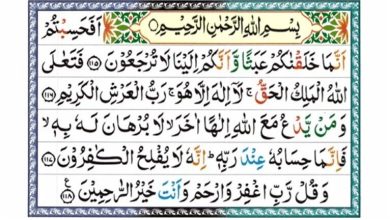 بِسْمِ اللهِ الرَّحْمٰنِ الرَّحِيْمِ ۝ اَفَحَسِبْتُمْ
اَنَّمَا خَلَقْنٰكُمْ عَبَثًا وَّ اَنَّكُمْ اِلَيْنَا لَا تُرْجَعُوْنَ ﴿۱۱۵﴾ فَتَعٰلَى
اللهُ الْمَلِكُ الْحَقُّ ۚ لَاۤ اِلٰهَ اِلَّا هُوَ ۚ رَبُّ الْعَرْشِ الْكَرِيْمِ ﴿۱۱۶﴾
وَ مَنْ يَّدْعُ مَعَ اللهِ اِلٰهًا اٰخَرَ ۙ لَا بُرْهَانَ لَهٗ بِهٖ ۙ
فَاِنَّمَا حِسَابُهٗ عِنْدَ رَبِّهٖ ؕ اِنَّهٗ لَا يُفْلِحُ الْكٰفِرُوْنَ ﴿۱۱۷﴾
وَ قُلْ رَّبِّ اغْفِرْ وَ ارْحَمْ وَ اَنْتَ خَيْرُ الرّٰحِمِيْنَ ﴿۱۱۸﴾ ع